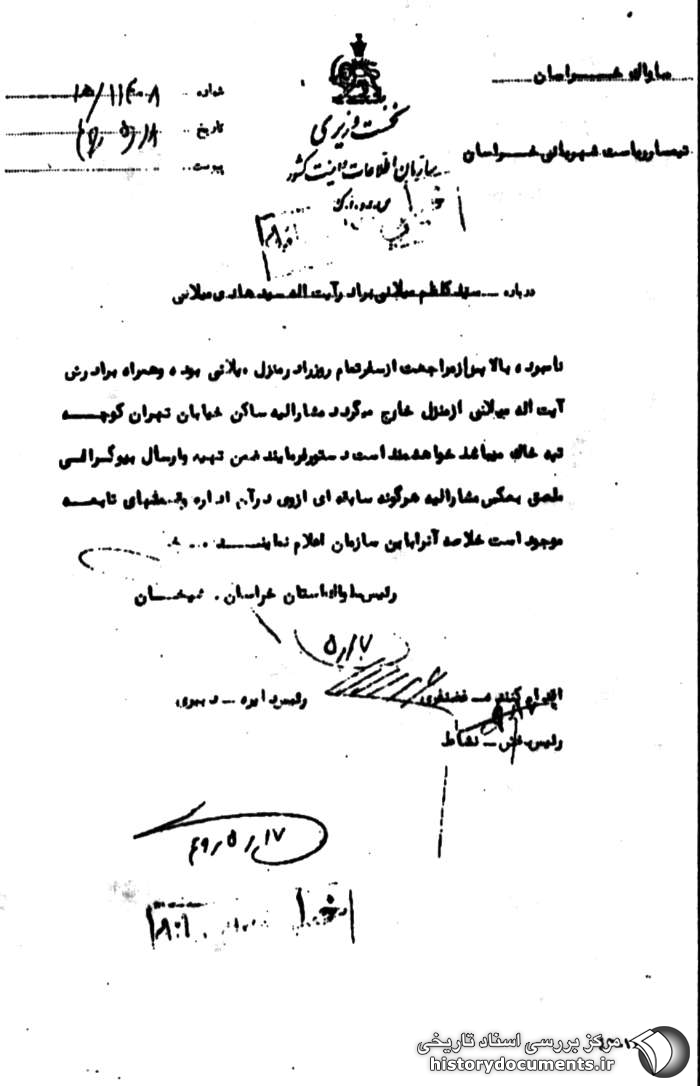 ساواک خراسان
تیمسار ریاست شهربانی خراسان
نخست وزیری
سازمان اطلاعات و امنیت کشور
س.ا.و.ا.ک
شماره
تاریخ
پیوست
درباره ــ سید کاظم میلانی برادر آیت اله سید هادی میلانی
نامبرده بالا پس از مراجعت از سفر تمام روز را در منزل میلانی بوده و همراه برادرش
آیت اله میلانی از منزل خارج میگردد مشارالیه ساکن خیابان تهران کوچه
میباشد خواهشمند است دستور فرمایند ضمن تهیه و ارسال بیوگرافی
ملصق بعکس مشارالیه هرگونه سابقه ای از وی در آن اداره و بخشهای تابعه
موجود است خلاصه آنرا باین سازمان اعلام نمایند
رئیس ساواک استان خراسان .
۵/۱۷
اقدام کننده ــ غضنفری
رئیس دایره ــ دبیری
رئیس بخش ــ نشاط
مرکز بررسی اسناد تاریخی
historydocuments.ir